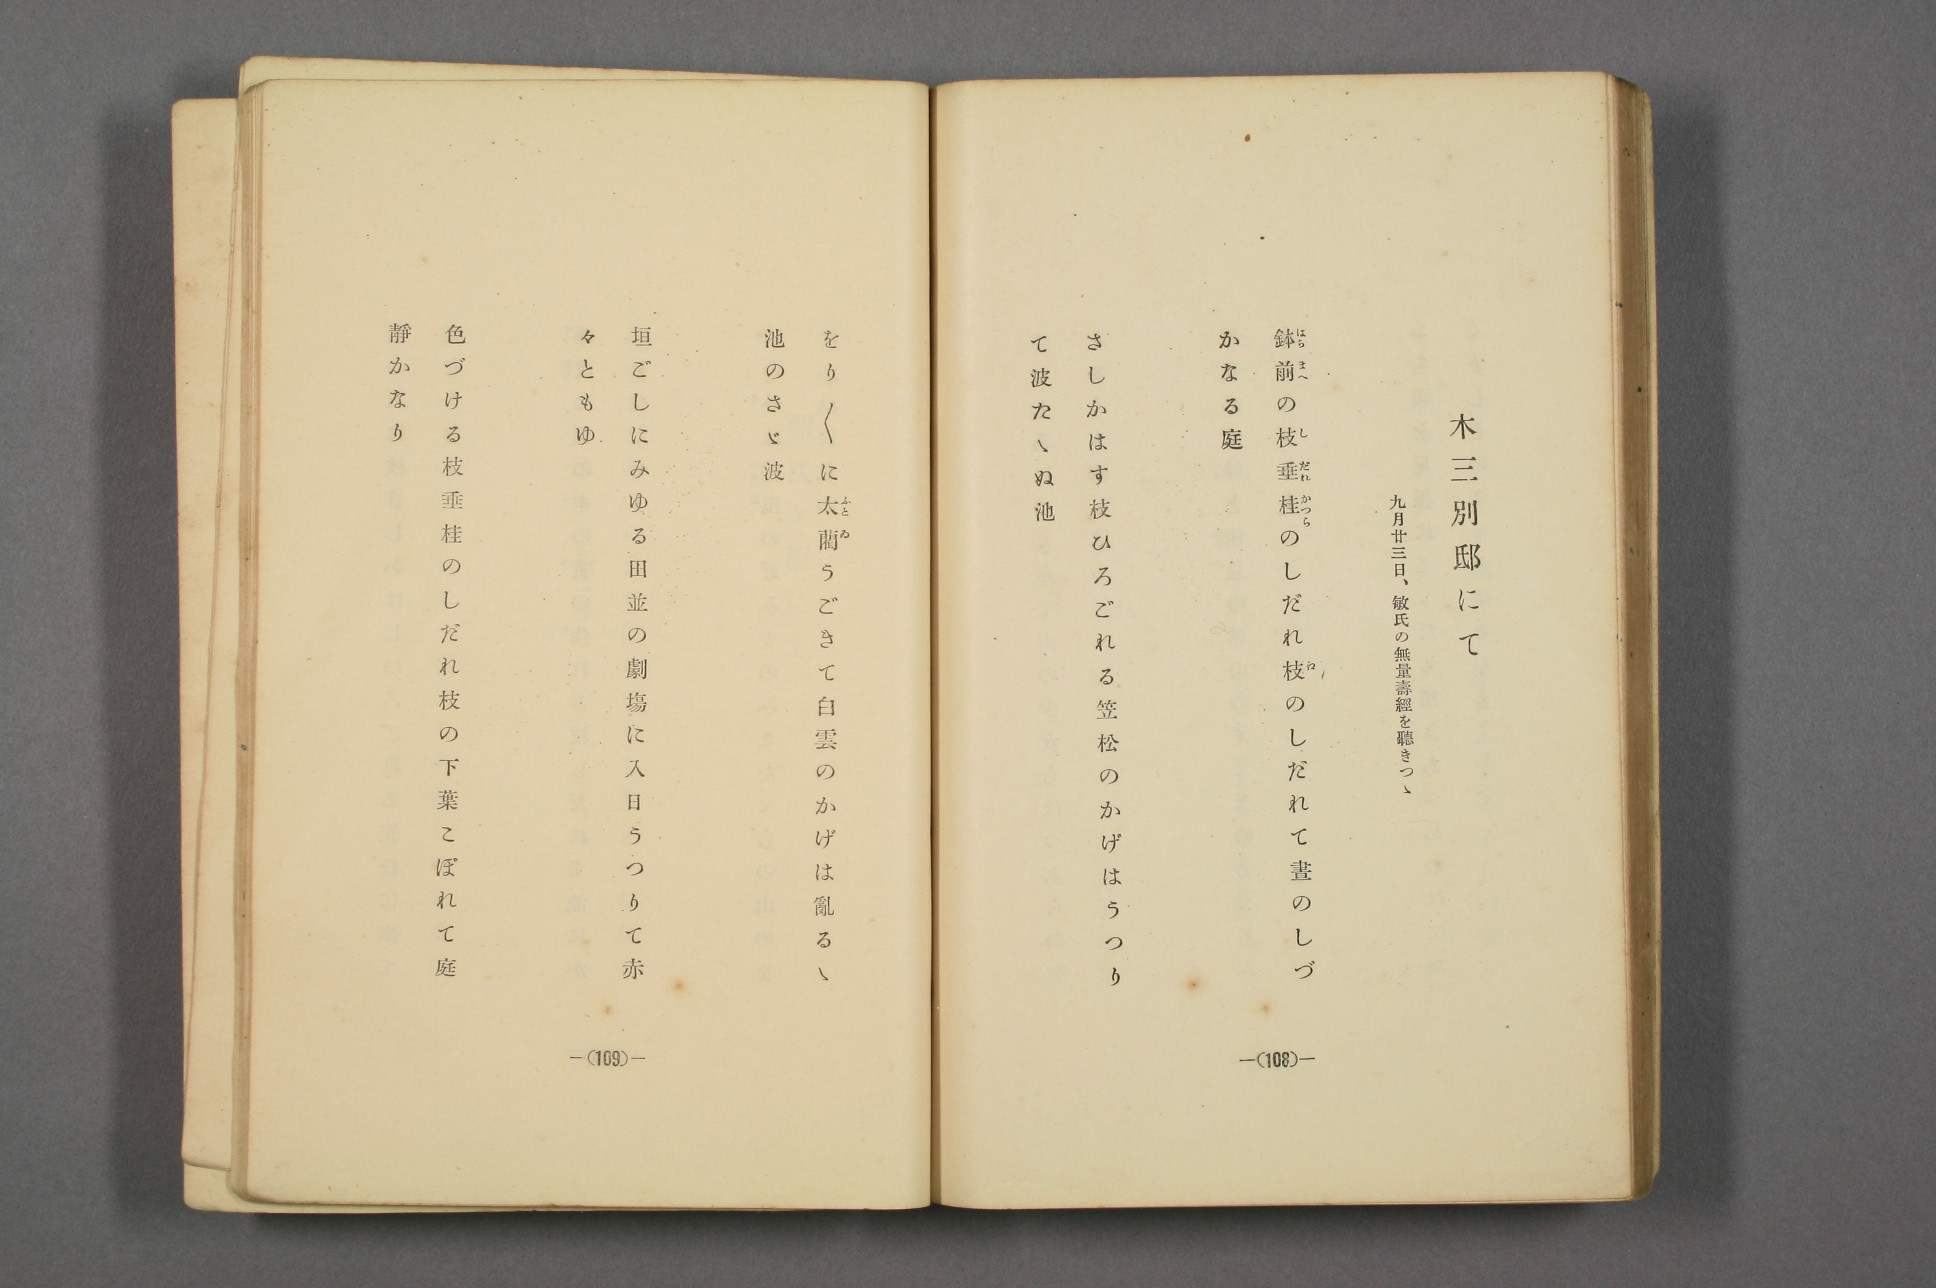 木三別邸にて
九月廿三日、敏氏の無量壽經を聽きつゝ
鉢前の枝垂桂のしだれ枝のしだれて晝のしづ
かなる庭
さしかはす枝ひろごれる笠松のかげはうつり
て波たゝぬ池
―(108)―
をり〱に太藺うごきて白雲のかげは亂るゝ
池のさゞ波
垣ごしにみゆる田並の劇塲に入日うつりて赤
々ともゆ
色づける枝垂桂のしだれ枝の下葉こぼれて庭
靜かなり
―(109)―